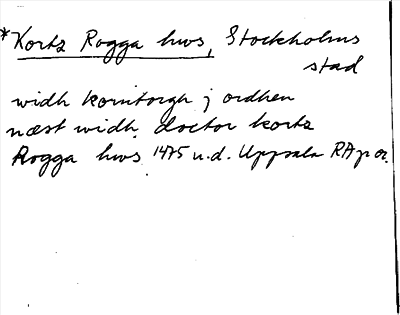 *Kortz Rogga hws, Stockholms
stad
widh korntorgh j ordhen
næst widh doctor kortz
Rogga hws 1475 u.d. Uppsala RAp or.